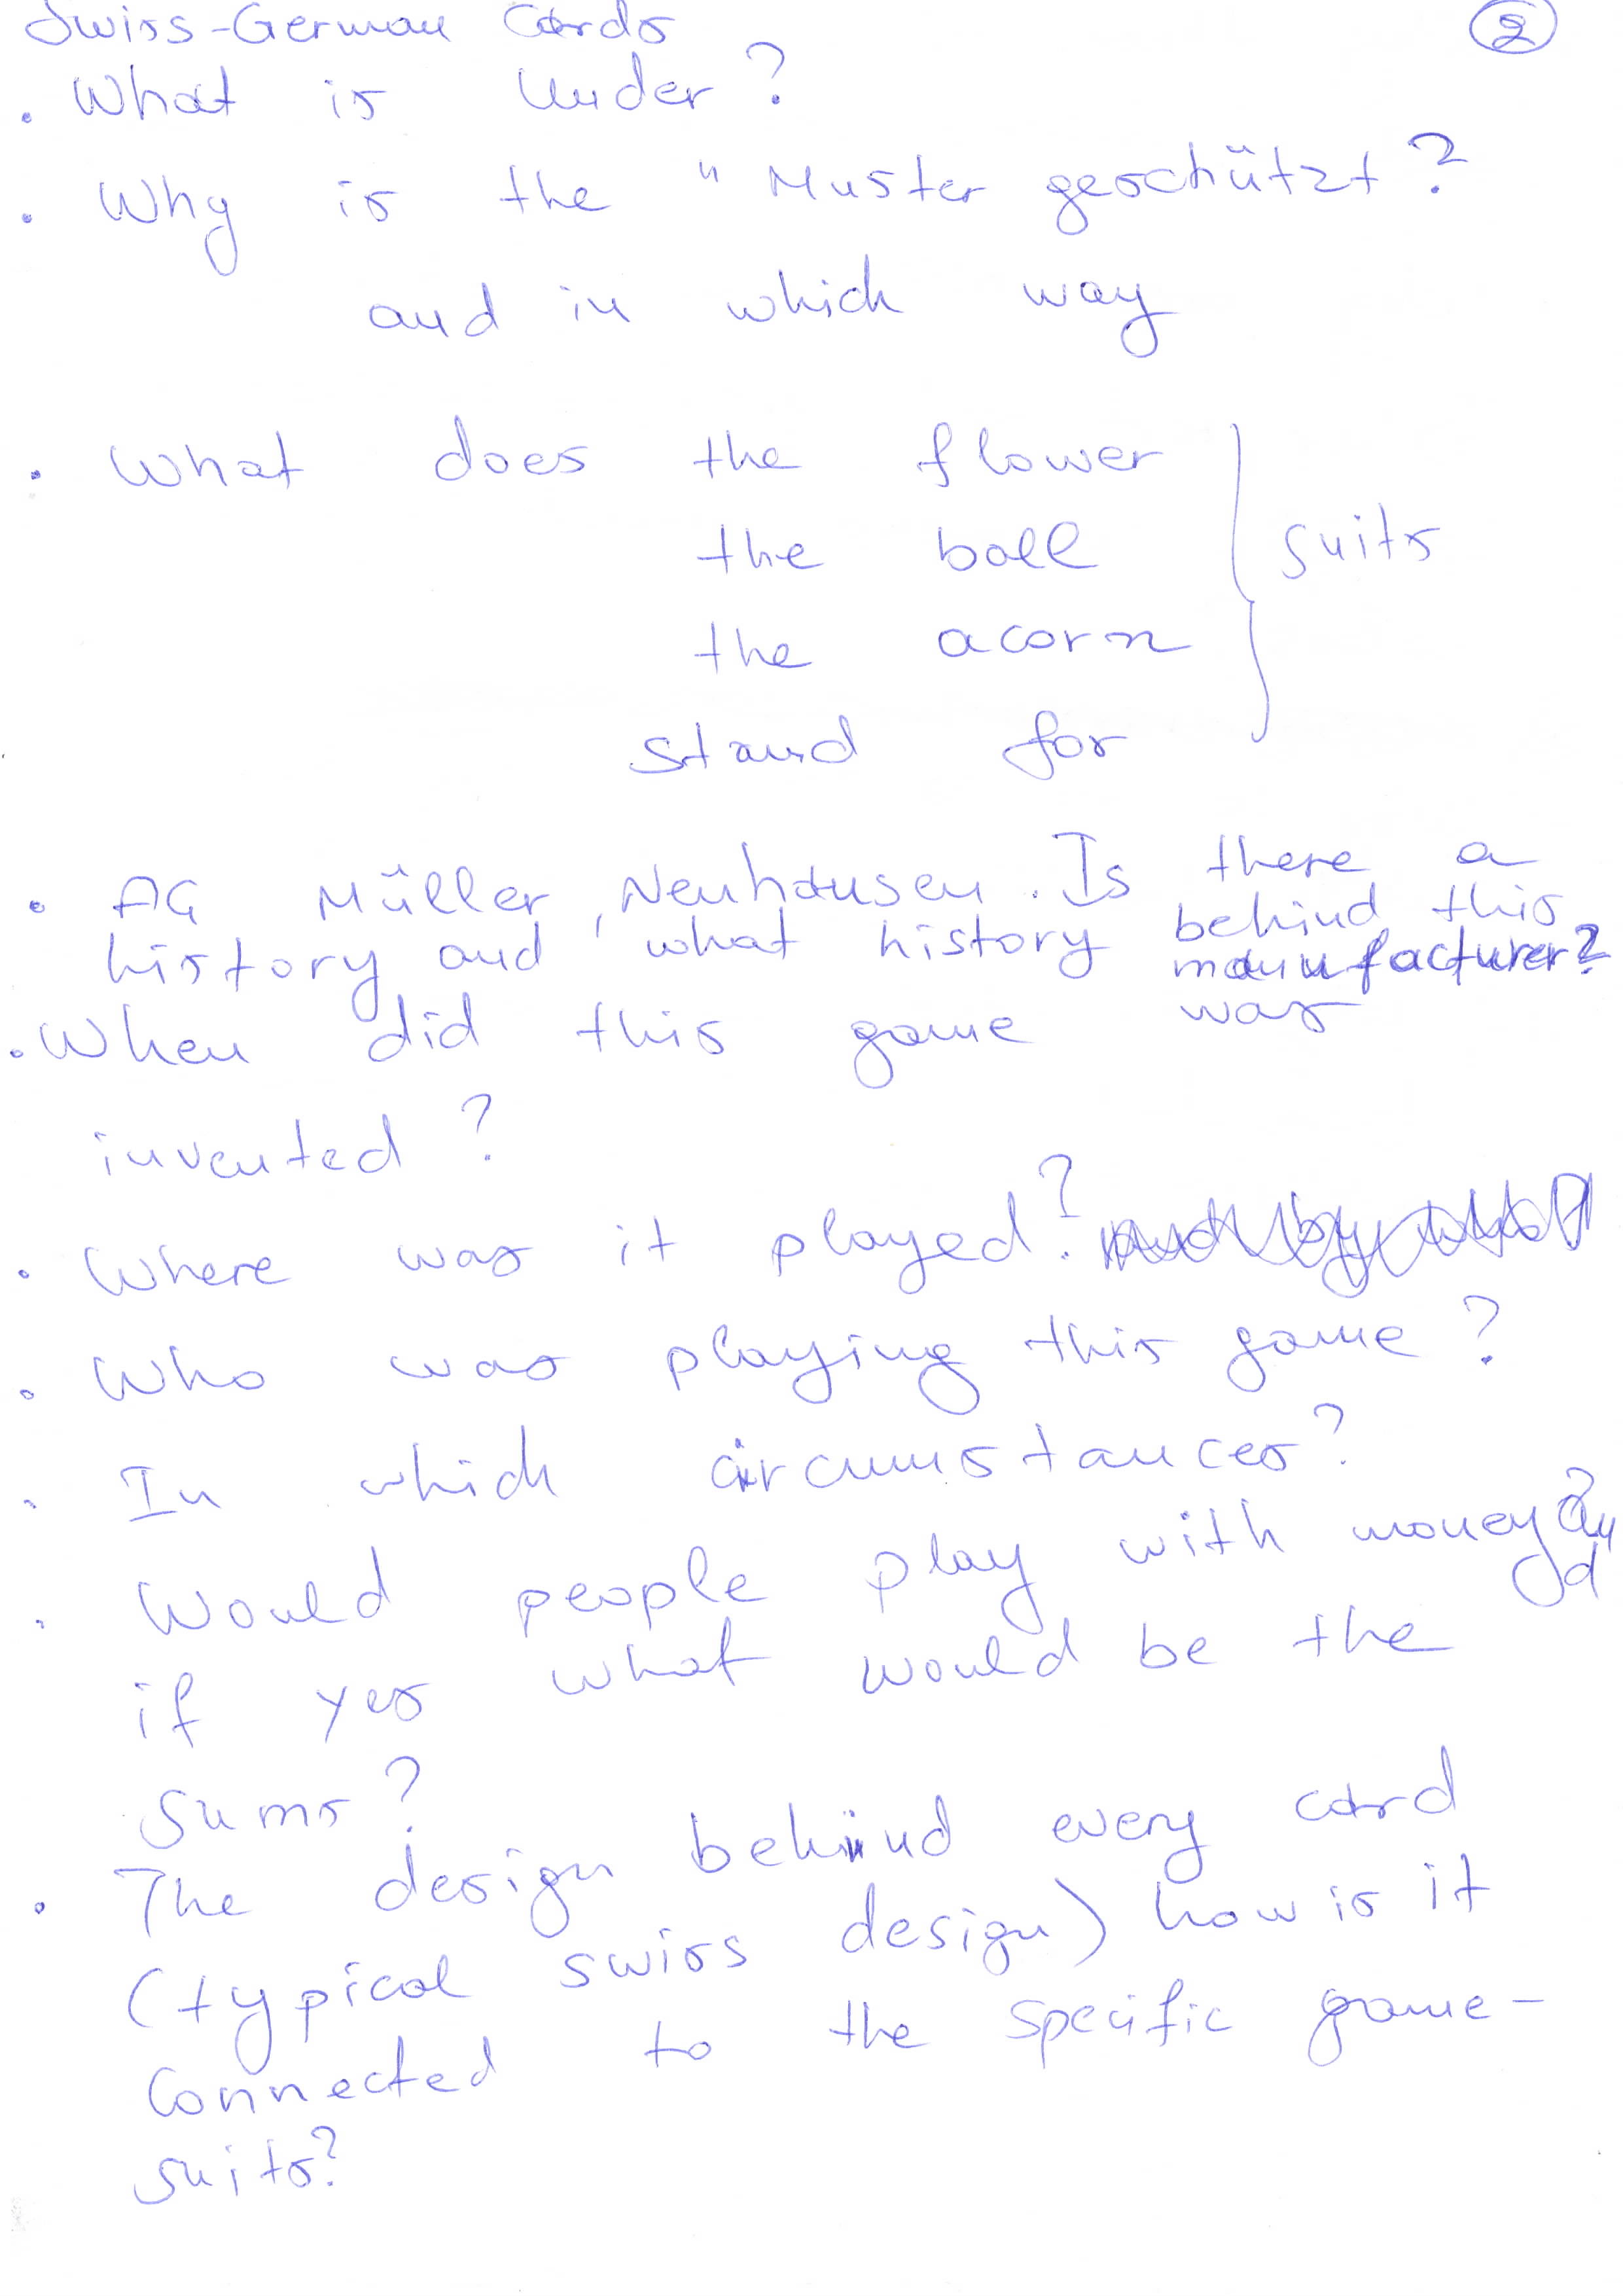 Swiss-German Cards
2
. What is Under?
. Why is the " Muster geschützt?
and in which way
. What does the flower
the ball
suits
the acorn
stand for
. AG Müller, Neuhausen. Is there a
history and what history behind this
manufacturer?
. When did this game was
invented?
. Where was it played? and by who?
. Who was playing this game?
. In which circumstances?
. Would people play with money? and
if yes what would be the
sums?
. The design behind every card
(typical swiss design) how is it
connected to the specific game-
suits?